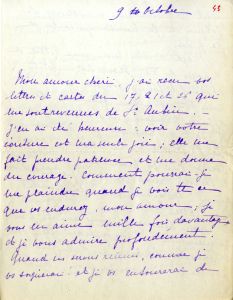 9 Octobre
43
Mon amour chéri, j'ai reçu vos
lettres et cartes du 17. 21 et 25 qui
me sont revenues de St Aubin.
J'en ai été heureuse: voir votre
écriture est ma seule joie; elle me
fait prendre patience et me donne
du courage. Comment pourrai-je
me plaindre quand je vois tt ce
que vs endurez, mon amour; je
vous en aime mille fois davantage
et je vous admire profondément.
Quand ns serons réunis, comme je
vs soignerai et je vs entourerai de